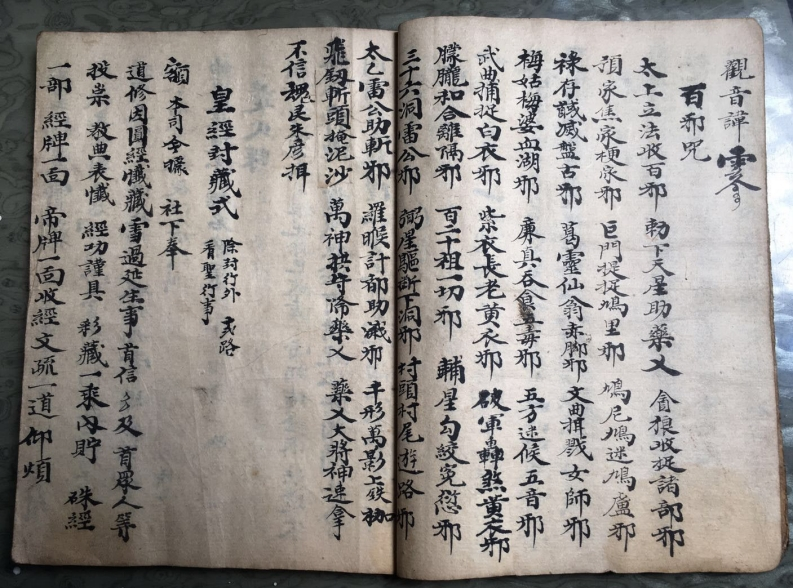 觀音諱
百邪咒
太上立法收百邪 勅下天星助藥叉 貪狼收捉諸部邪
項家焦家梗家邪 巨門捉捉鳩里邪 鳩尼鳩迷鳩盧邪
祿存誠滅盤古邪 葛靈仙翁赤腳邪 文曲揖戮女師邪
梅姑梅婆血湖邪 廉貞吞食五毒邪 五方迷候五音邪
武曲捕捉白衣邪 紫衣長老黄衣邪 破軍轟煞黄衣邪
朦朧和合離隔邪 百二十祖一切邪 輔星勾絞寃愆邪
三十六洞雷公邪 弼星驅斬下洞邪 村頭村尾遊路邪
太乙雷公助斬邪 羅睺計都助滅邪 千形萬影上鉄枷
飛劔斬頭掩泥沙 萬神拱守滌藥叉 藥叉大將神速拿
不信
皇經封藏式 除封行外 式路
看聖行事
額 本司全㨿 社下奉
道修因圓經懺藏雪過延生事首信 及首眾人等
投祟 教典表懺 經功謹具 彩藏一乘內貯 硃經
一部 經牌一面 帝牌一面收經文疏一道 仰煩